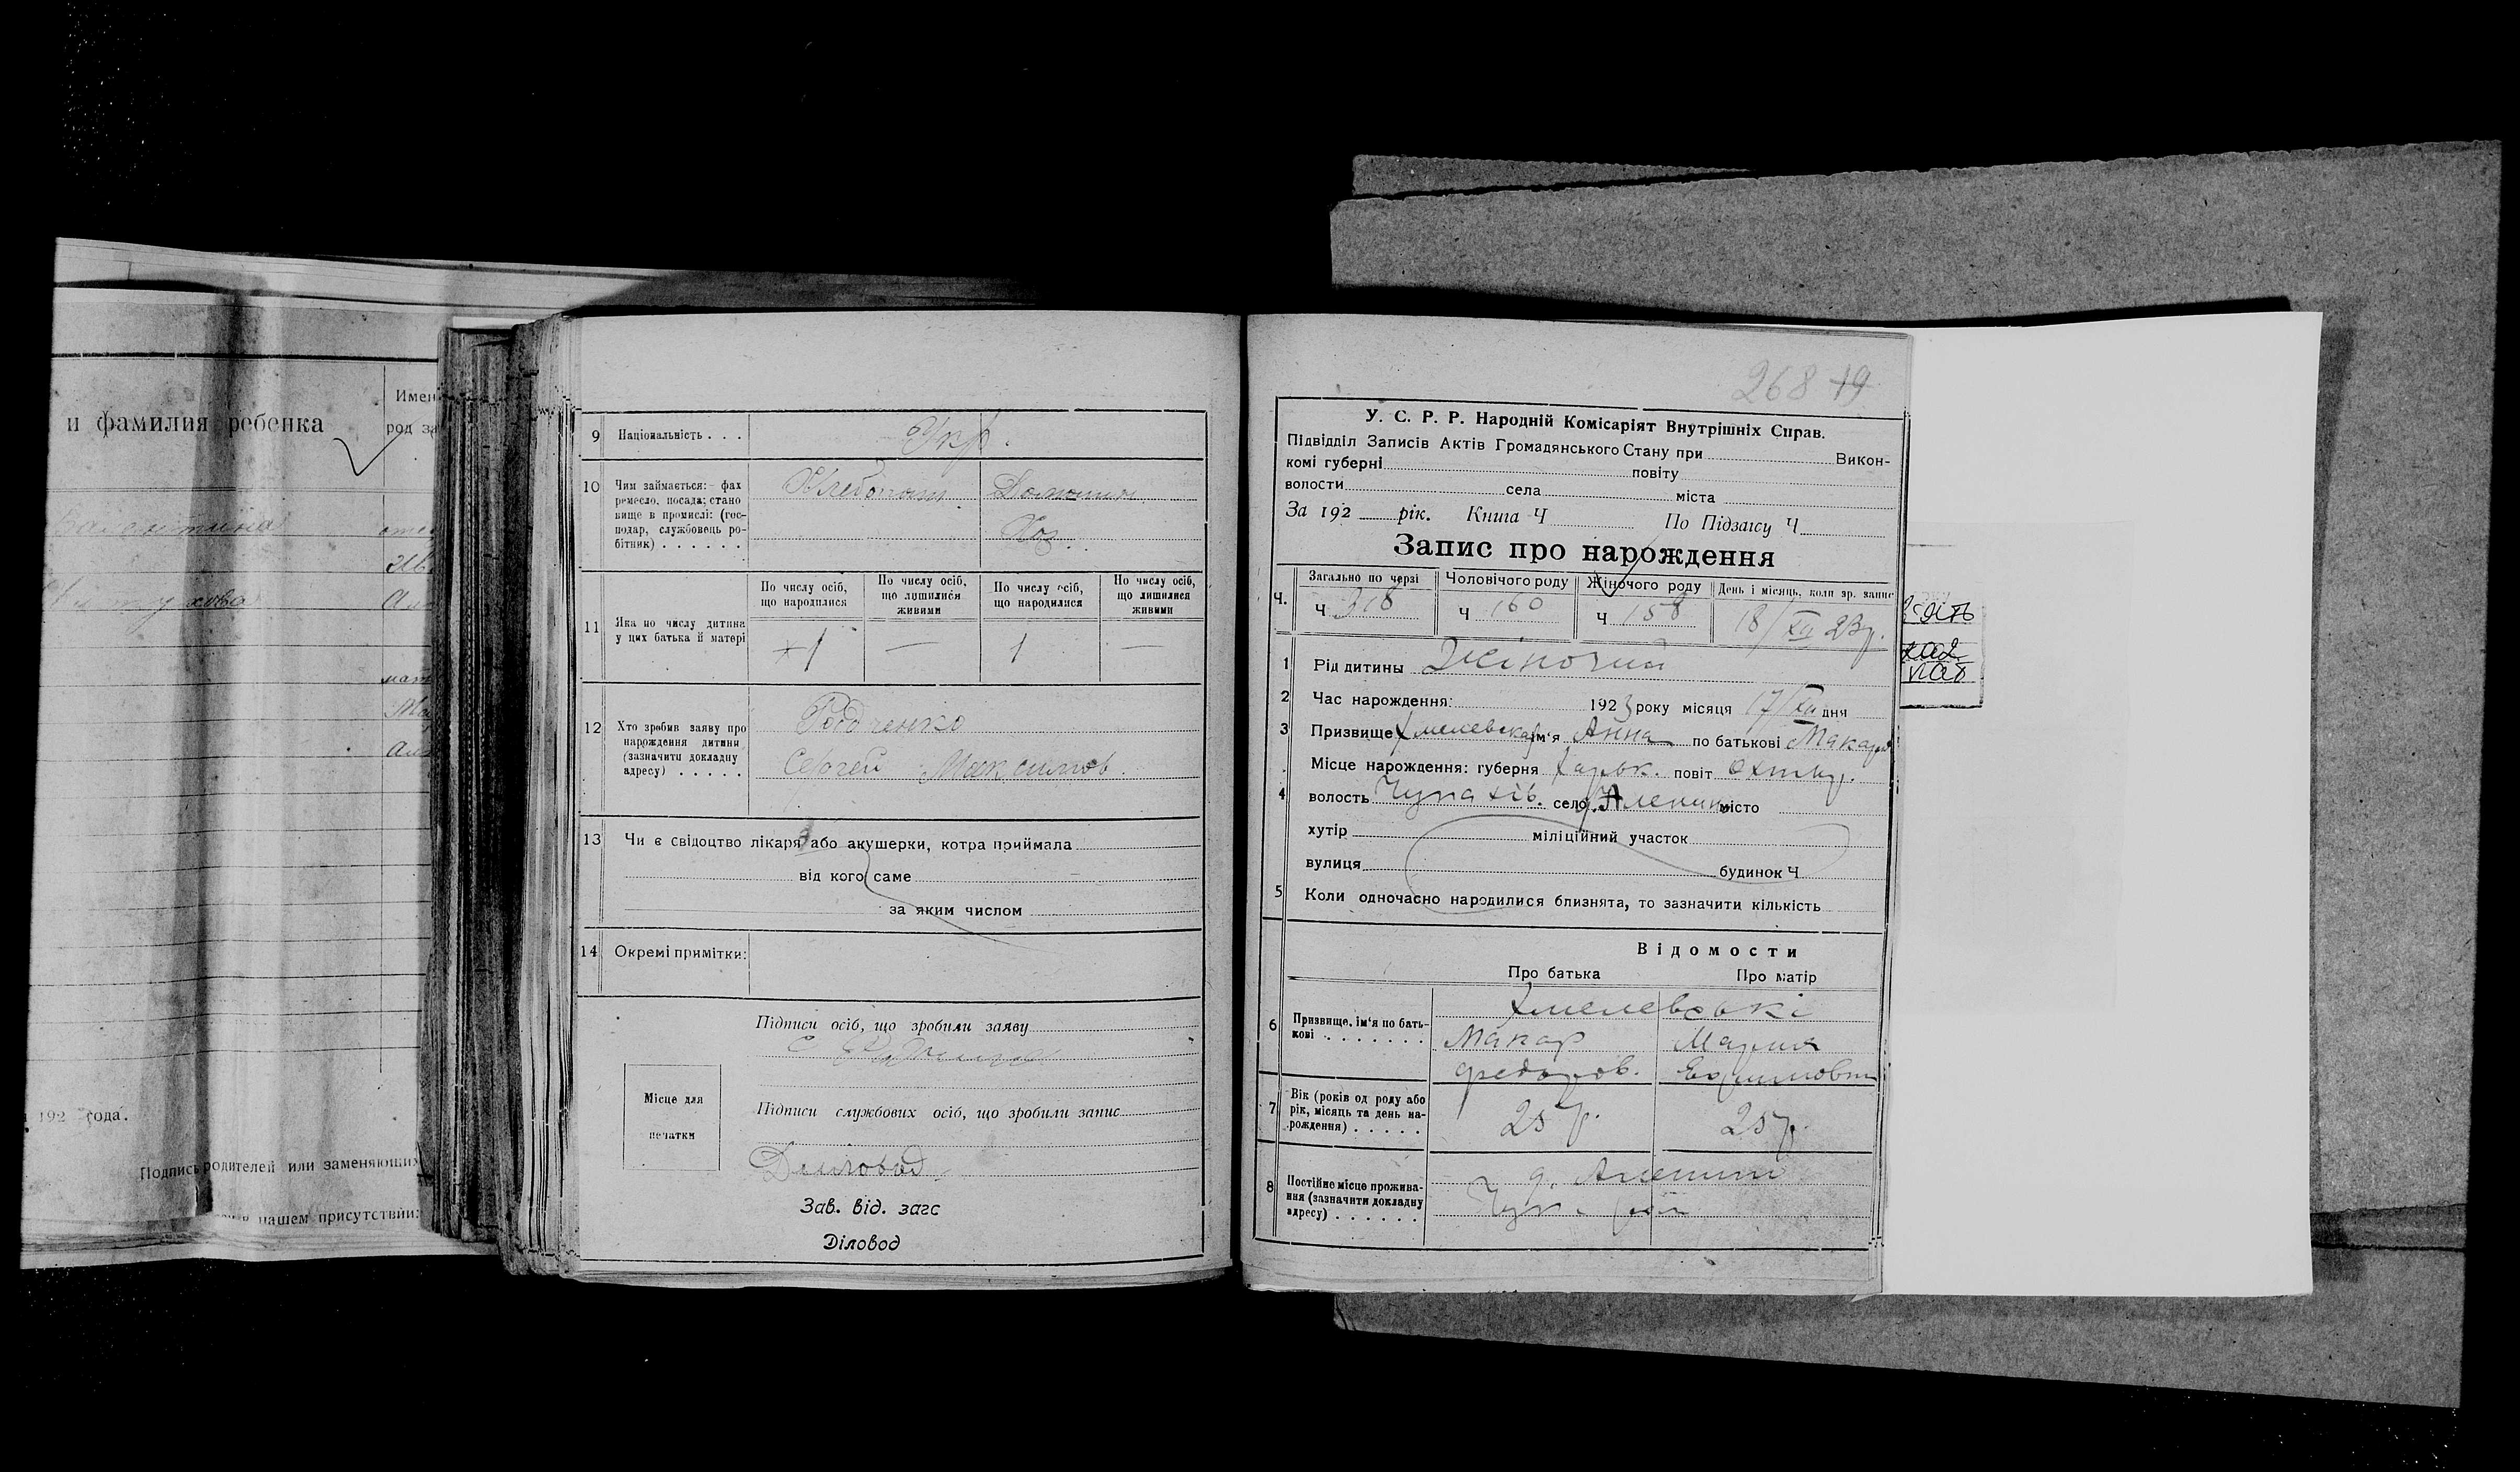 и фамилия ребенка
Имен
род за
192 года.
Подпись родителей или заменяющих
в нашем присутствии:
9 Національність . . . Укр.
10 Чим займається: - фах
ремесло, посада; стано
вище в промислі: (гос-
подар, службовець ро-
бітник) . . . . . .
Хлебопаш. Домашн.
Хоз.
11 Яка по числу дитина
у цих батька й матері
По числу осіб,
що народилися
По числу осіб,
що лишилися
живими
По числу осіб,
що народилися
По числу осіб,
що лишилися
живими
1 — 1 —
12 Хто зробив заяву про
нарождення дитини
(зазначити докладну
адресу) . . . . .
Родченко
Сергей Максимов.
13 Чи є свідоцтво лікаря або акушерки, котра приймала
від кого саме
за яким числом
14 Окремі примітки:
Підписи осіб, що зробили заяву
Місце для
печатки
Підписи службових осіб, що зробили запис
Діловод
Зав. від. загс
Діловод
268 19
У. С. Р. Р. Народній Комісаріят Внутрішніх Справ.
Підвідділ Записів Актів Громадянського Стану при Викон-
комі губерні повіту
волости села міста
За 192 рік. Книга Ч По Підзагсу Ч
Запис про народження
Ч. Загально по черзі Чоловічого роду Жіночого роду День і місяць, коли зр. запис
Ч 318 Ч 160 Ч 158 18/XII 23 р.
1 Рід дитины Жіночий
2 Час нарождення: 1923 року місяця 17/XII дня
3 Призвище Хмелевска ім'я Анна по батькові Макаров
Місце нарождення: губерня Харьк. повіт Охтир.
4 волость Чупахів. село місто
хутір міліційний участок
вулиця будинок Ч
5 Коли одночасно народилися близнята, то зазначити кількість
Відомости
Про батька Про матір
6 Призвище, ім'я по бать-
кові . . . . . . .
Хмелевські
Макар Мария
Федоров. Ефимовна
7 Вік (років од роду або
рік, місяць та день на-
рождення) . . . . .
25 р. 25 р.
8 Постійне місце прожива-
ння (зазначити докладну
адресу) . . . . . .